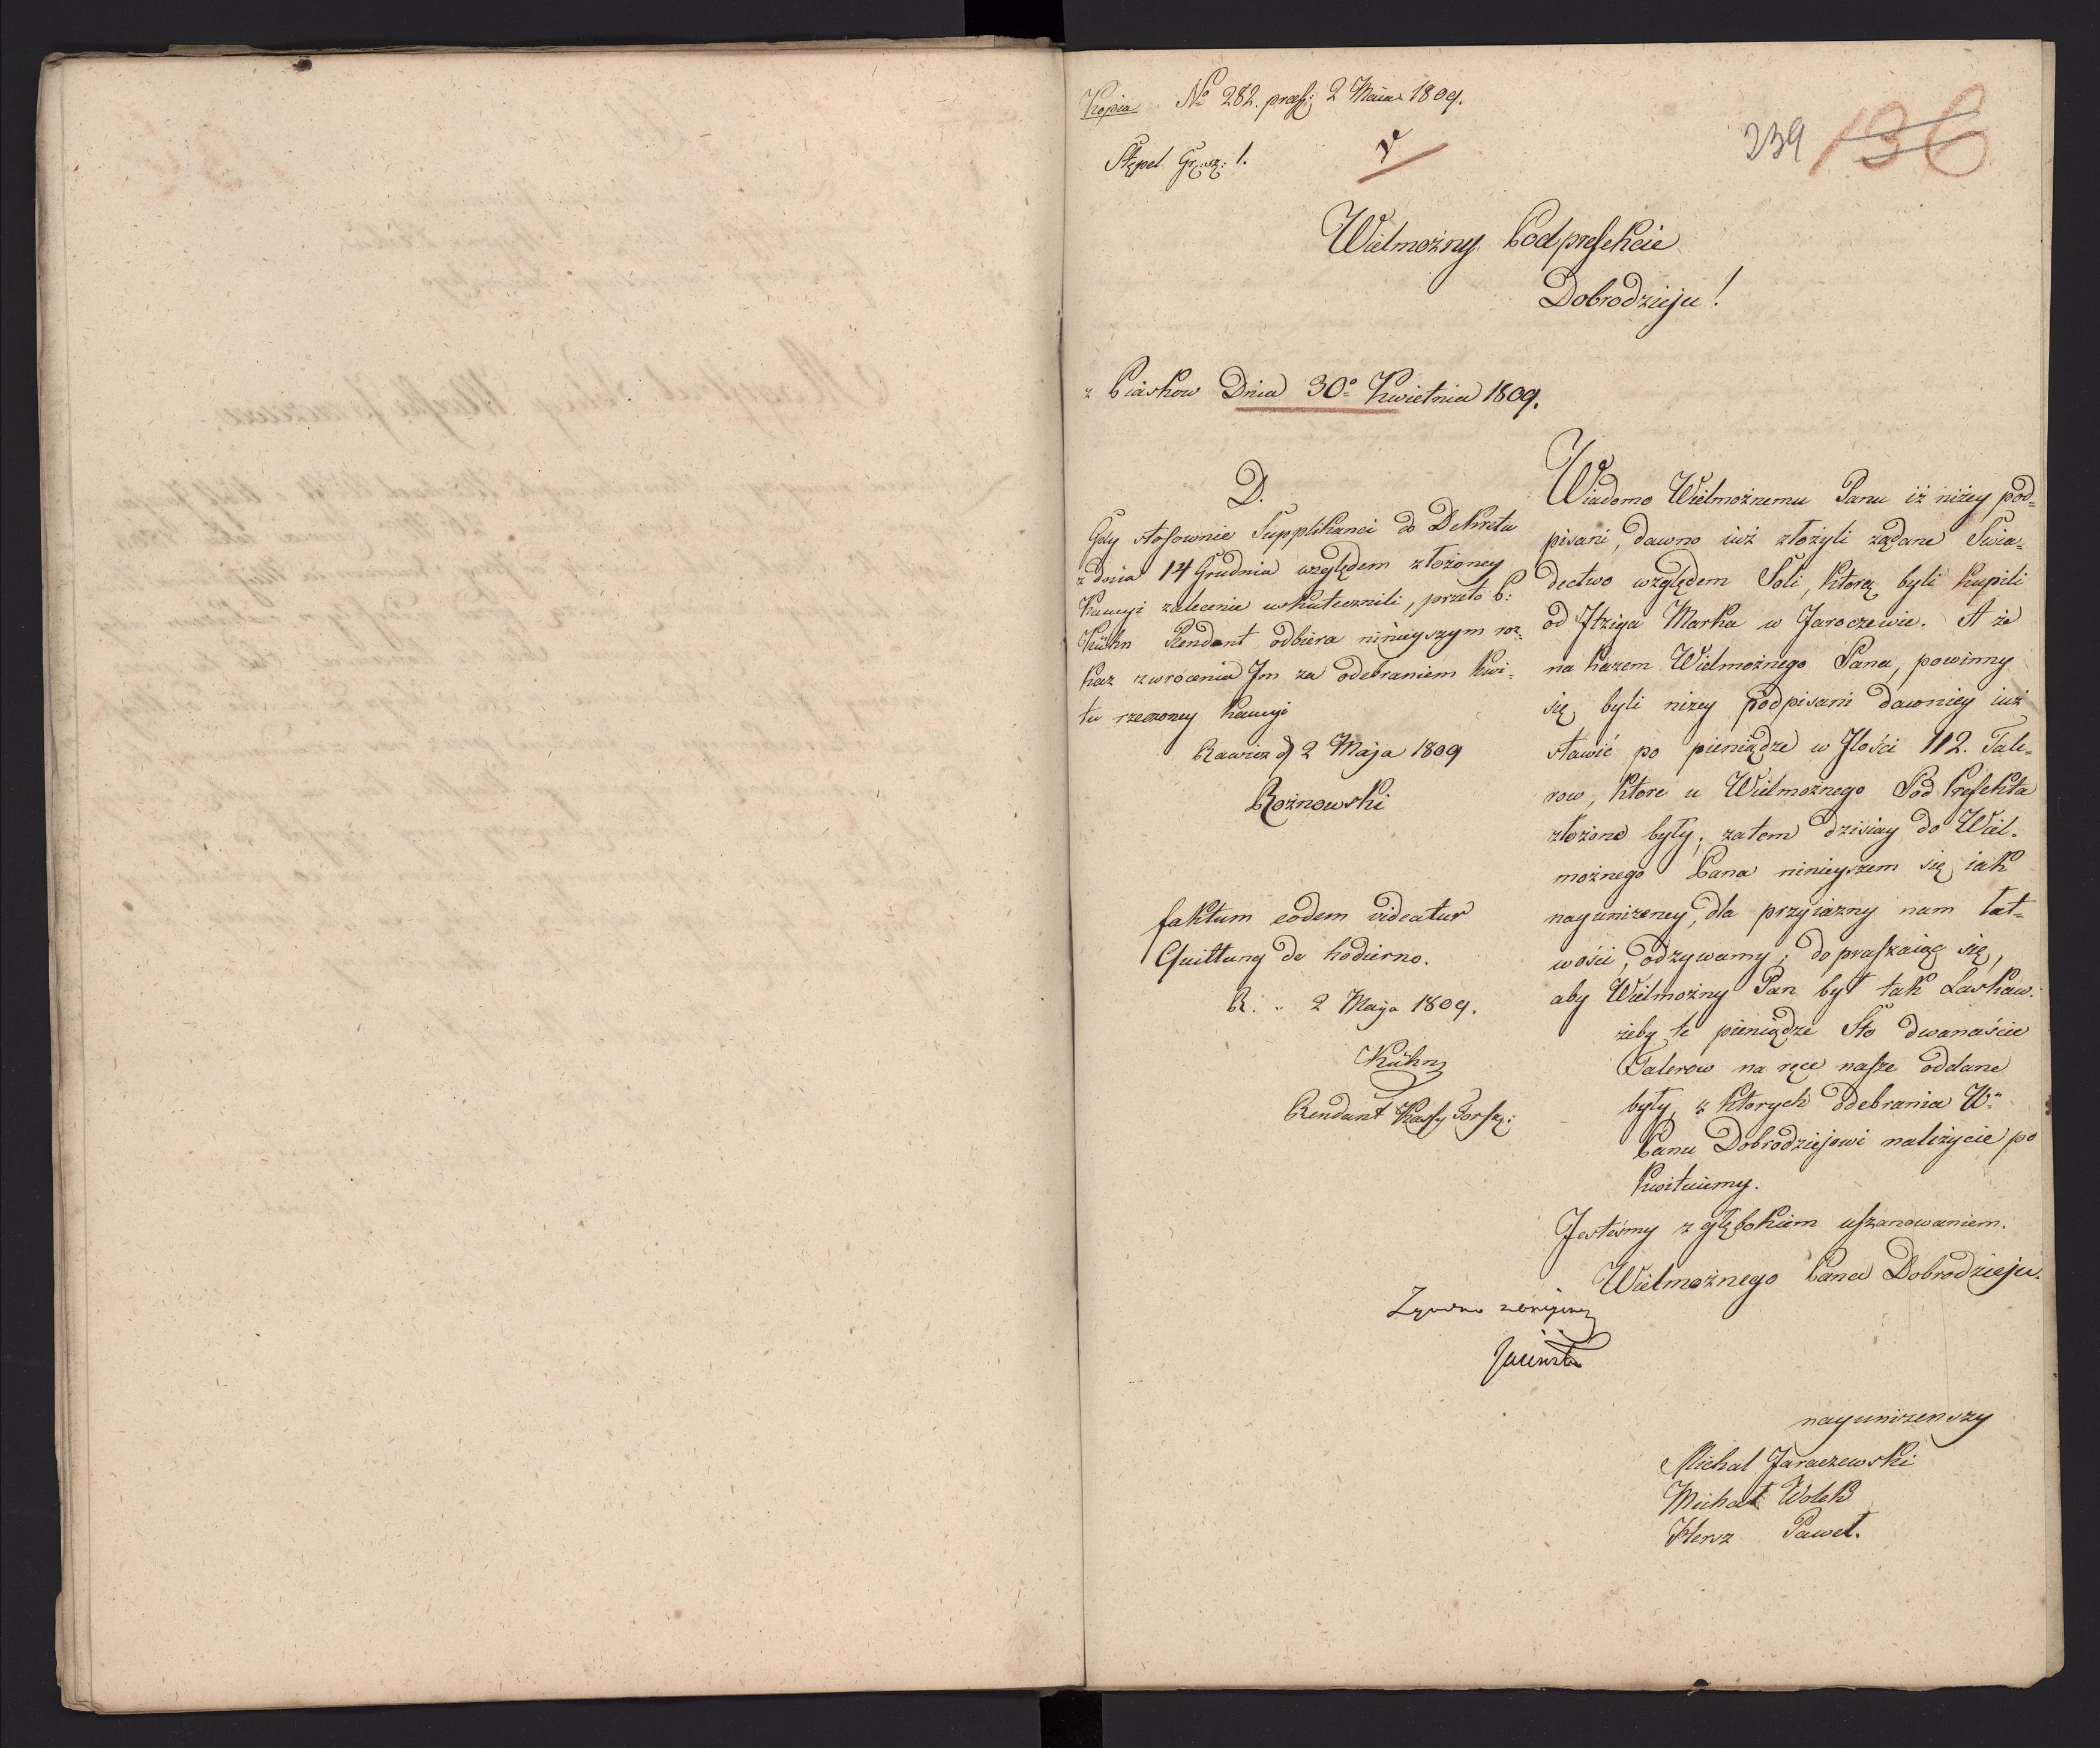 Kopia No 282. praes: 2 Maia 1809.
Stępel Gr: sz: 1.
239 136
Wielmożny Podprefekcie
Dobrodzieju!
z Piaskow Dnia 30o Kwietnia 1809.
D.
Gdy stosownie Supplikanci do Dekretu
z dnia 14 Grudnia względem złożoney
Kaucyi zalecenie uskutecznili, przeto P:
Kühn Rendant odbiera ninieyszym roz-
kaz zwrocenia Im za odebraniem kwi-
tu rzeczoney kaucyi
Rawicz d 2 Maja 1809
Rożnowski
faktum eodem videatur
Quittung de hodierno.
R. 2 Maja 1809.
Kühn
Rendant Kassy Forsz:
Wiadomo Wielmożnemu Panu iż niżey pod-
pisani, dawno iuż złożyli żądane Swia-
dectwo względem Soli, którą byli kupili
od Itziga Marka w Jaroczewie. A że
na kazem Wielmożnego Pana, powinny
się byli niżey podpisani dawniey iuż
stawić po pieniądze w Ilości 112. Tale-
row, ktore u Wielmożnego Pod Prefekta
złożone były; zatem dzisiay do Wiel-
możnego Pana ninieyszem się iak
nayuniżeney, dla przyiazny nam łat-
wości, odzywamy; do praszaiąc się,
aby Wielmożny Pan był tak Laskaw:
żeby te pieniądze Sto dwanaście
Talerow na ręce nasze oddane
były, z ktorych odebrania Wo
Panu Dobrodziejowi należycie po
kwitujemy.
Jesteśmy z głębokiem uszanowaniem.
Wielmożnego Pana Dobrodzieju.
Zgodno z oryginy
nayuniżenszy
Michał Jaraczewski
Michał Wolek
Hersz Paweł.